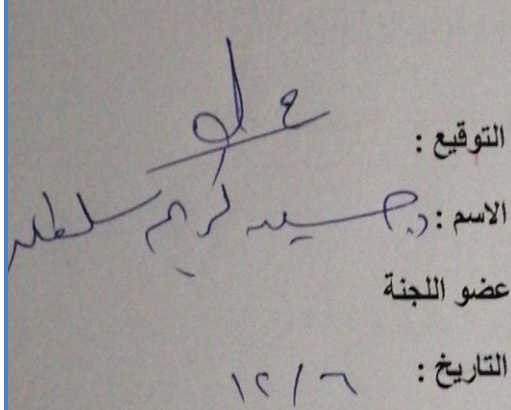 التوقيع :
الاسم : د. حسين كريم سلطان
عضو اللجنة
التاريخ : ١٢/٦